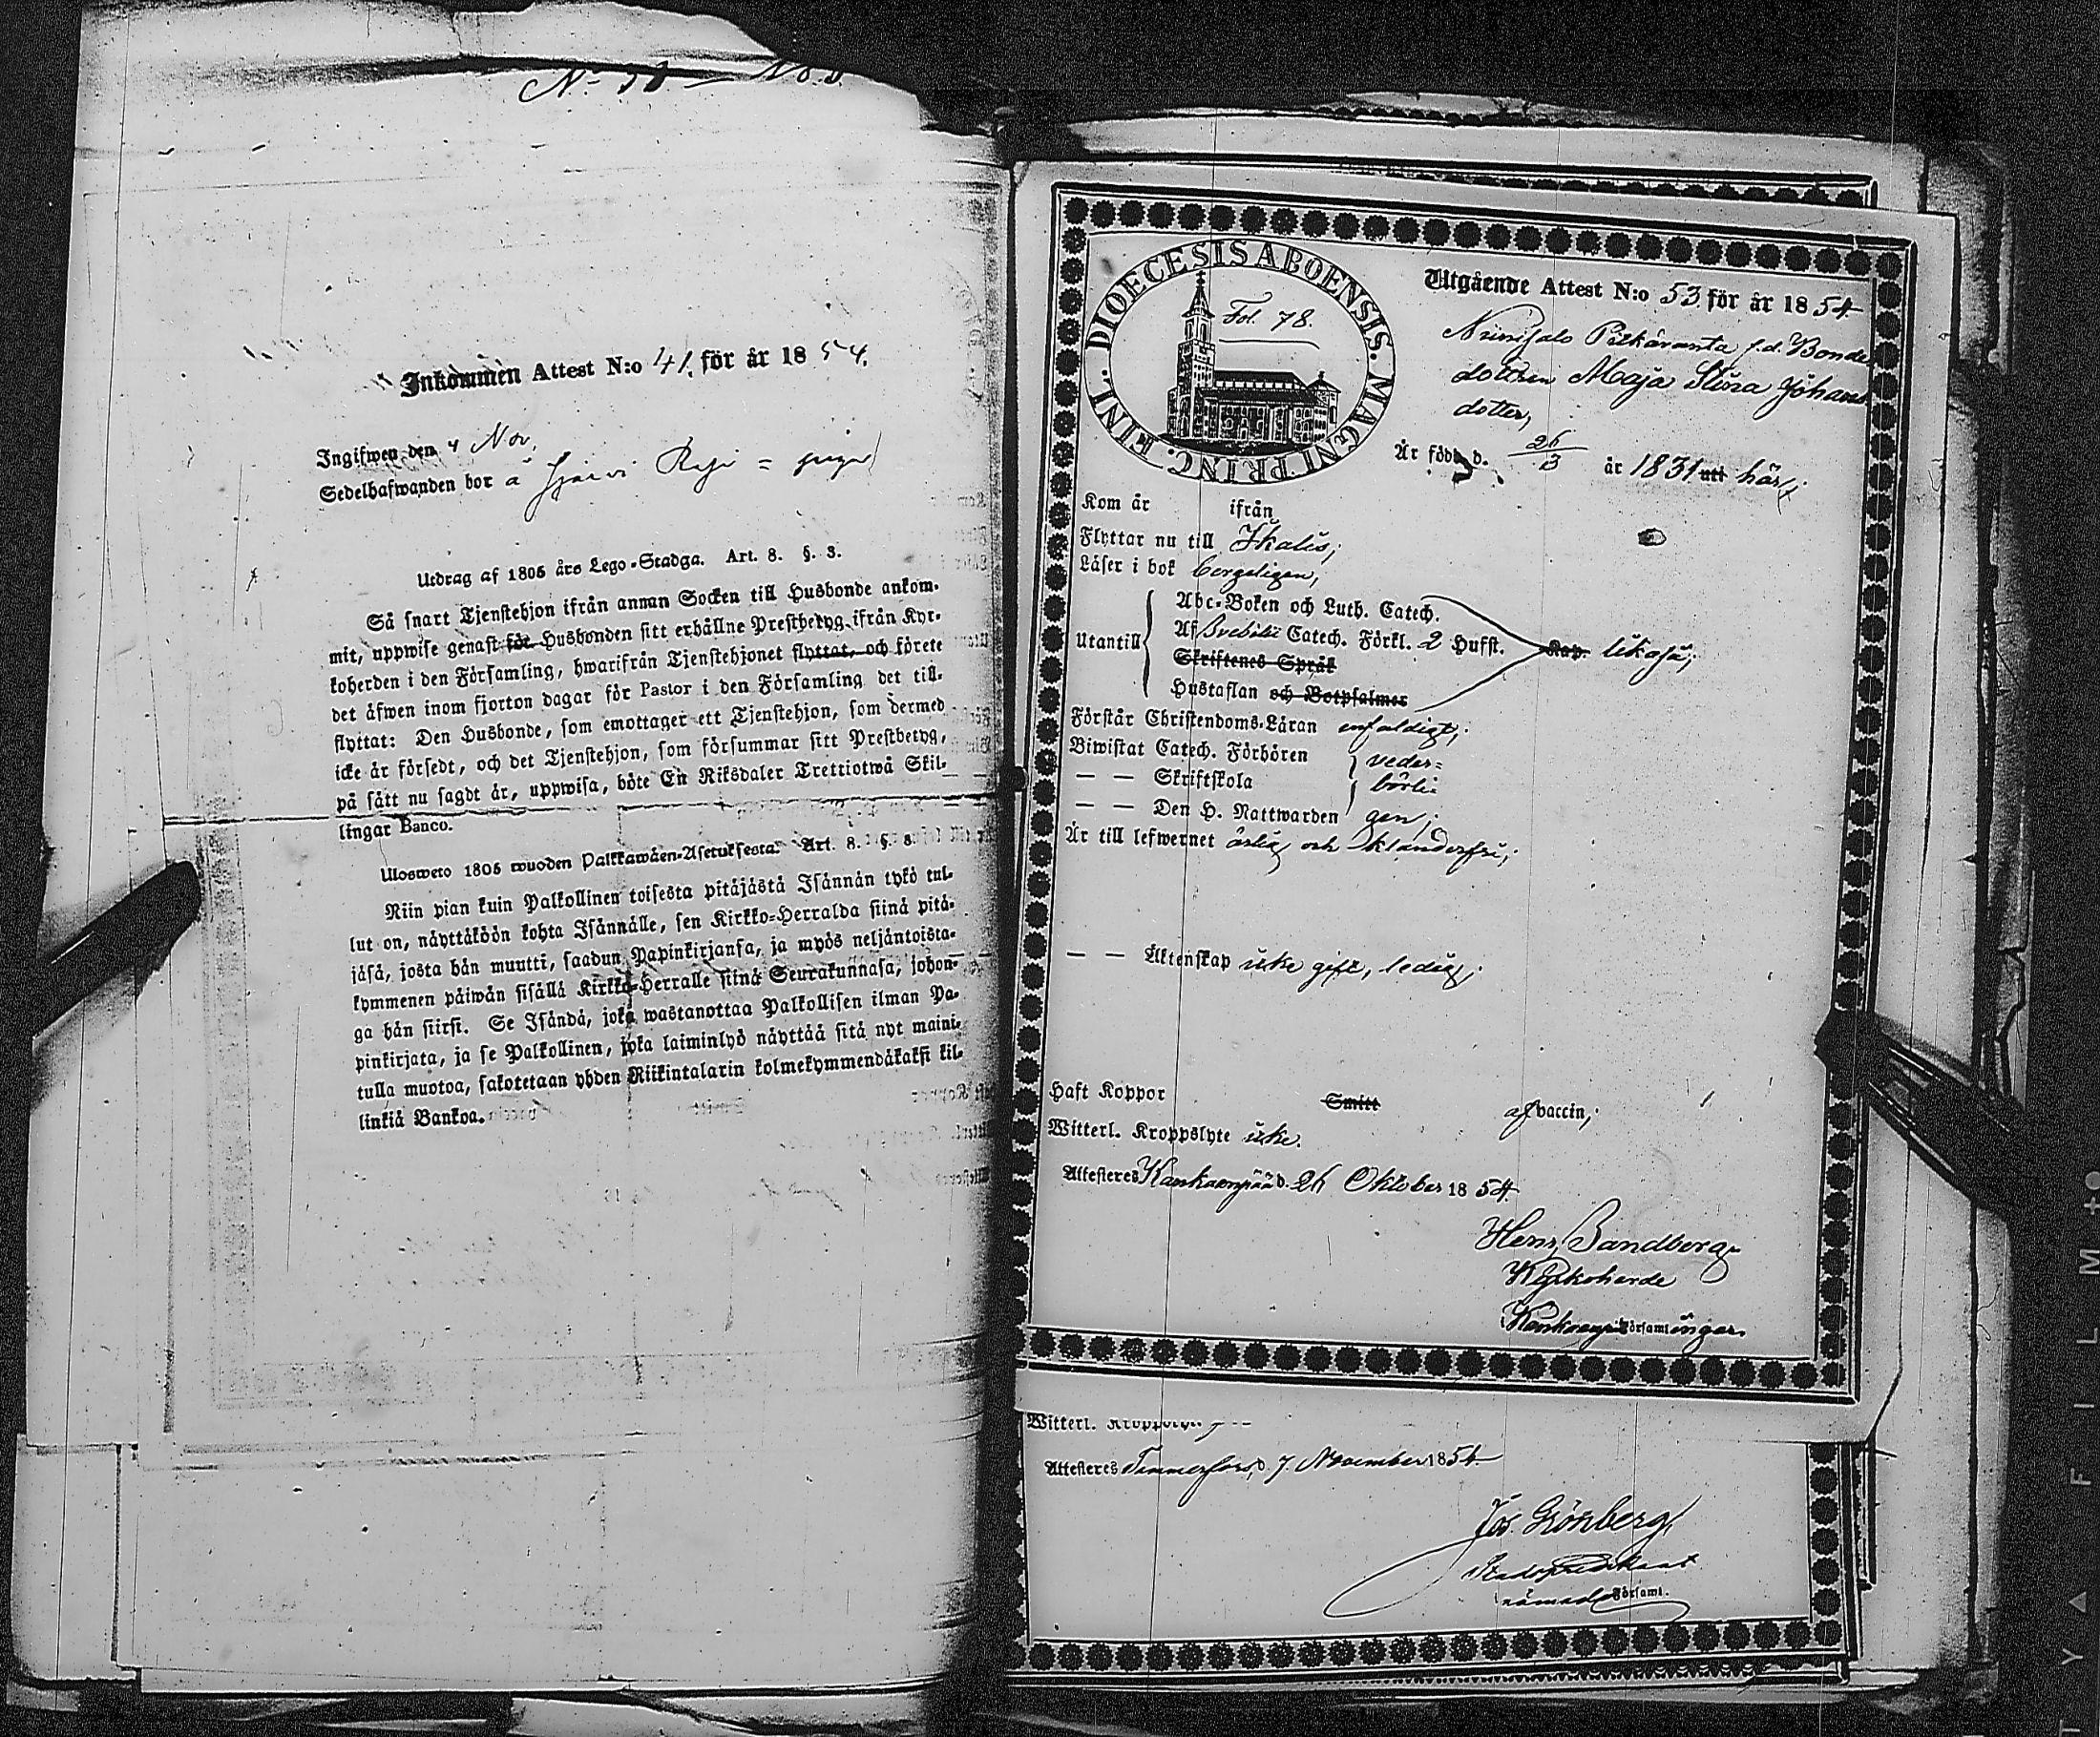 Inkommen Attest N:o 41. för år 1854.
Ingifwen den 4 Nov.
Sedelhafwanden bor å
Utdrag af 1805 års Lego-Stadga. Art. 8. §. 3.
Så snart Tjenstehjon ifrån annan Socken till Husbonde ankom-
mit, uppwise genast för Husbonden sitt erhållne Prestbetyg ifrån Kyr-
koherden i den Församling, hwarifrån Tjenstehjonet flyttat, och förete
det äfwen inom fjorton dagar för Pastor i den Församling det till-
flyttat: Den Husbonde, som emottager ett Tjenstehjon, som dermed
icke är försedt, och det Tjenstehjon, som försummar sitt Prestbetyg,
på sätt nu sagdt är, uppwisa, böte En Riksdaler Trettiotwå Skil-
lingar Banco.
Ulosweto 1805 wuoden Palkkawäen-Asetuksesta. Art. 8. §. 8.
Niin pian kuin Palkollinen toisesta pitäjästä Isännän tykö tul-
lut on, näyttäköön kohta Isännälle, sen Kirkko-Herralda siinä pitä-
jäsä, josta hän muutti, saadun Papinkirjansa, ja myös neljäntoista-
kymmenen päiwän sisällä Kirkko-Herralle siinä Seurakunnasa, johon-
ga hän siirsi. Se Isändä, joka wastanottaa Palkollisen ilman Pa-
pinkirjata, ja se Palkollinen, joka laiminlyö näyttää sitä nyt maini-
tulla muotoa, sakotetaan yhden Riikintalarin kolmekymmendäkaksi kil-
linkiä Bankoa.
DIOECESIS ABOENSIS. MAGNI PRINC. FINL.
Fol. 78.
Utgående Attest N:o 53 för år 1854
Niinisalo Pitkäranta f.d. Bonde
dottren Maja Stina Johans
dotter,
Är född d. 26/3 år 1831 uti här;
Kom år ifrån
Flyttar nu till Ikalis;
Läser i bok begeligen,
Utantill
Abc-Boken och Luth. Catech.
Af Svebilii Catech. Förkl. 2 Hufst.
Skriftenes Språk
Hustaflan och Botpsalmer
Kap. likaså;
Förstår Christendoms-Läran enfaldigt;
Biwistat Catech. Förhören veder=
— — Skriftskola börli=
— — Den H. Nattwarden gen;
Är till lefwernet ärlig och klanderfri;
— — Äktenskap icke gift, ledig;
Haft Koppor Smitt af vaccin;
Witterl. Kroppslyte icke.
Attesteras Kankaanpää d. 26 Oktober 1854
Henr. Sandberg
Kyrkoherde
i Kankaanpää Församlingar.
Witterl.
Attesteres Tammerfors, d. 7. November 1854
Jos. Grönberg
Stadspredikant
i nämnde Församl.